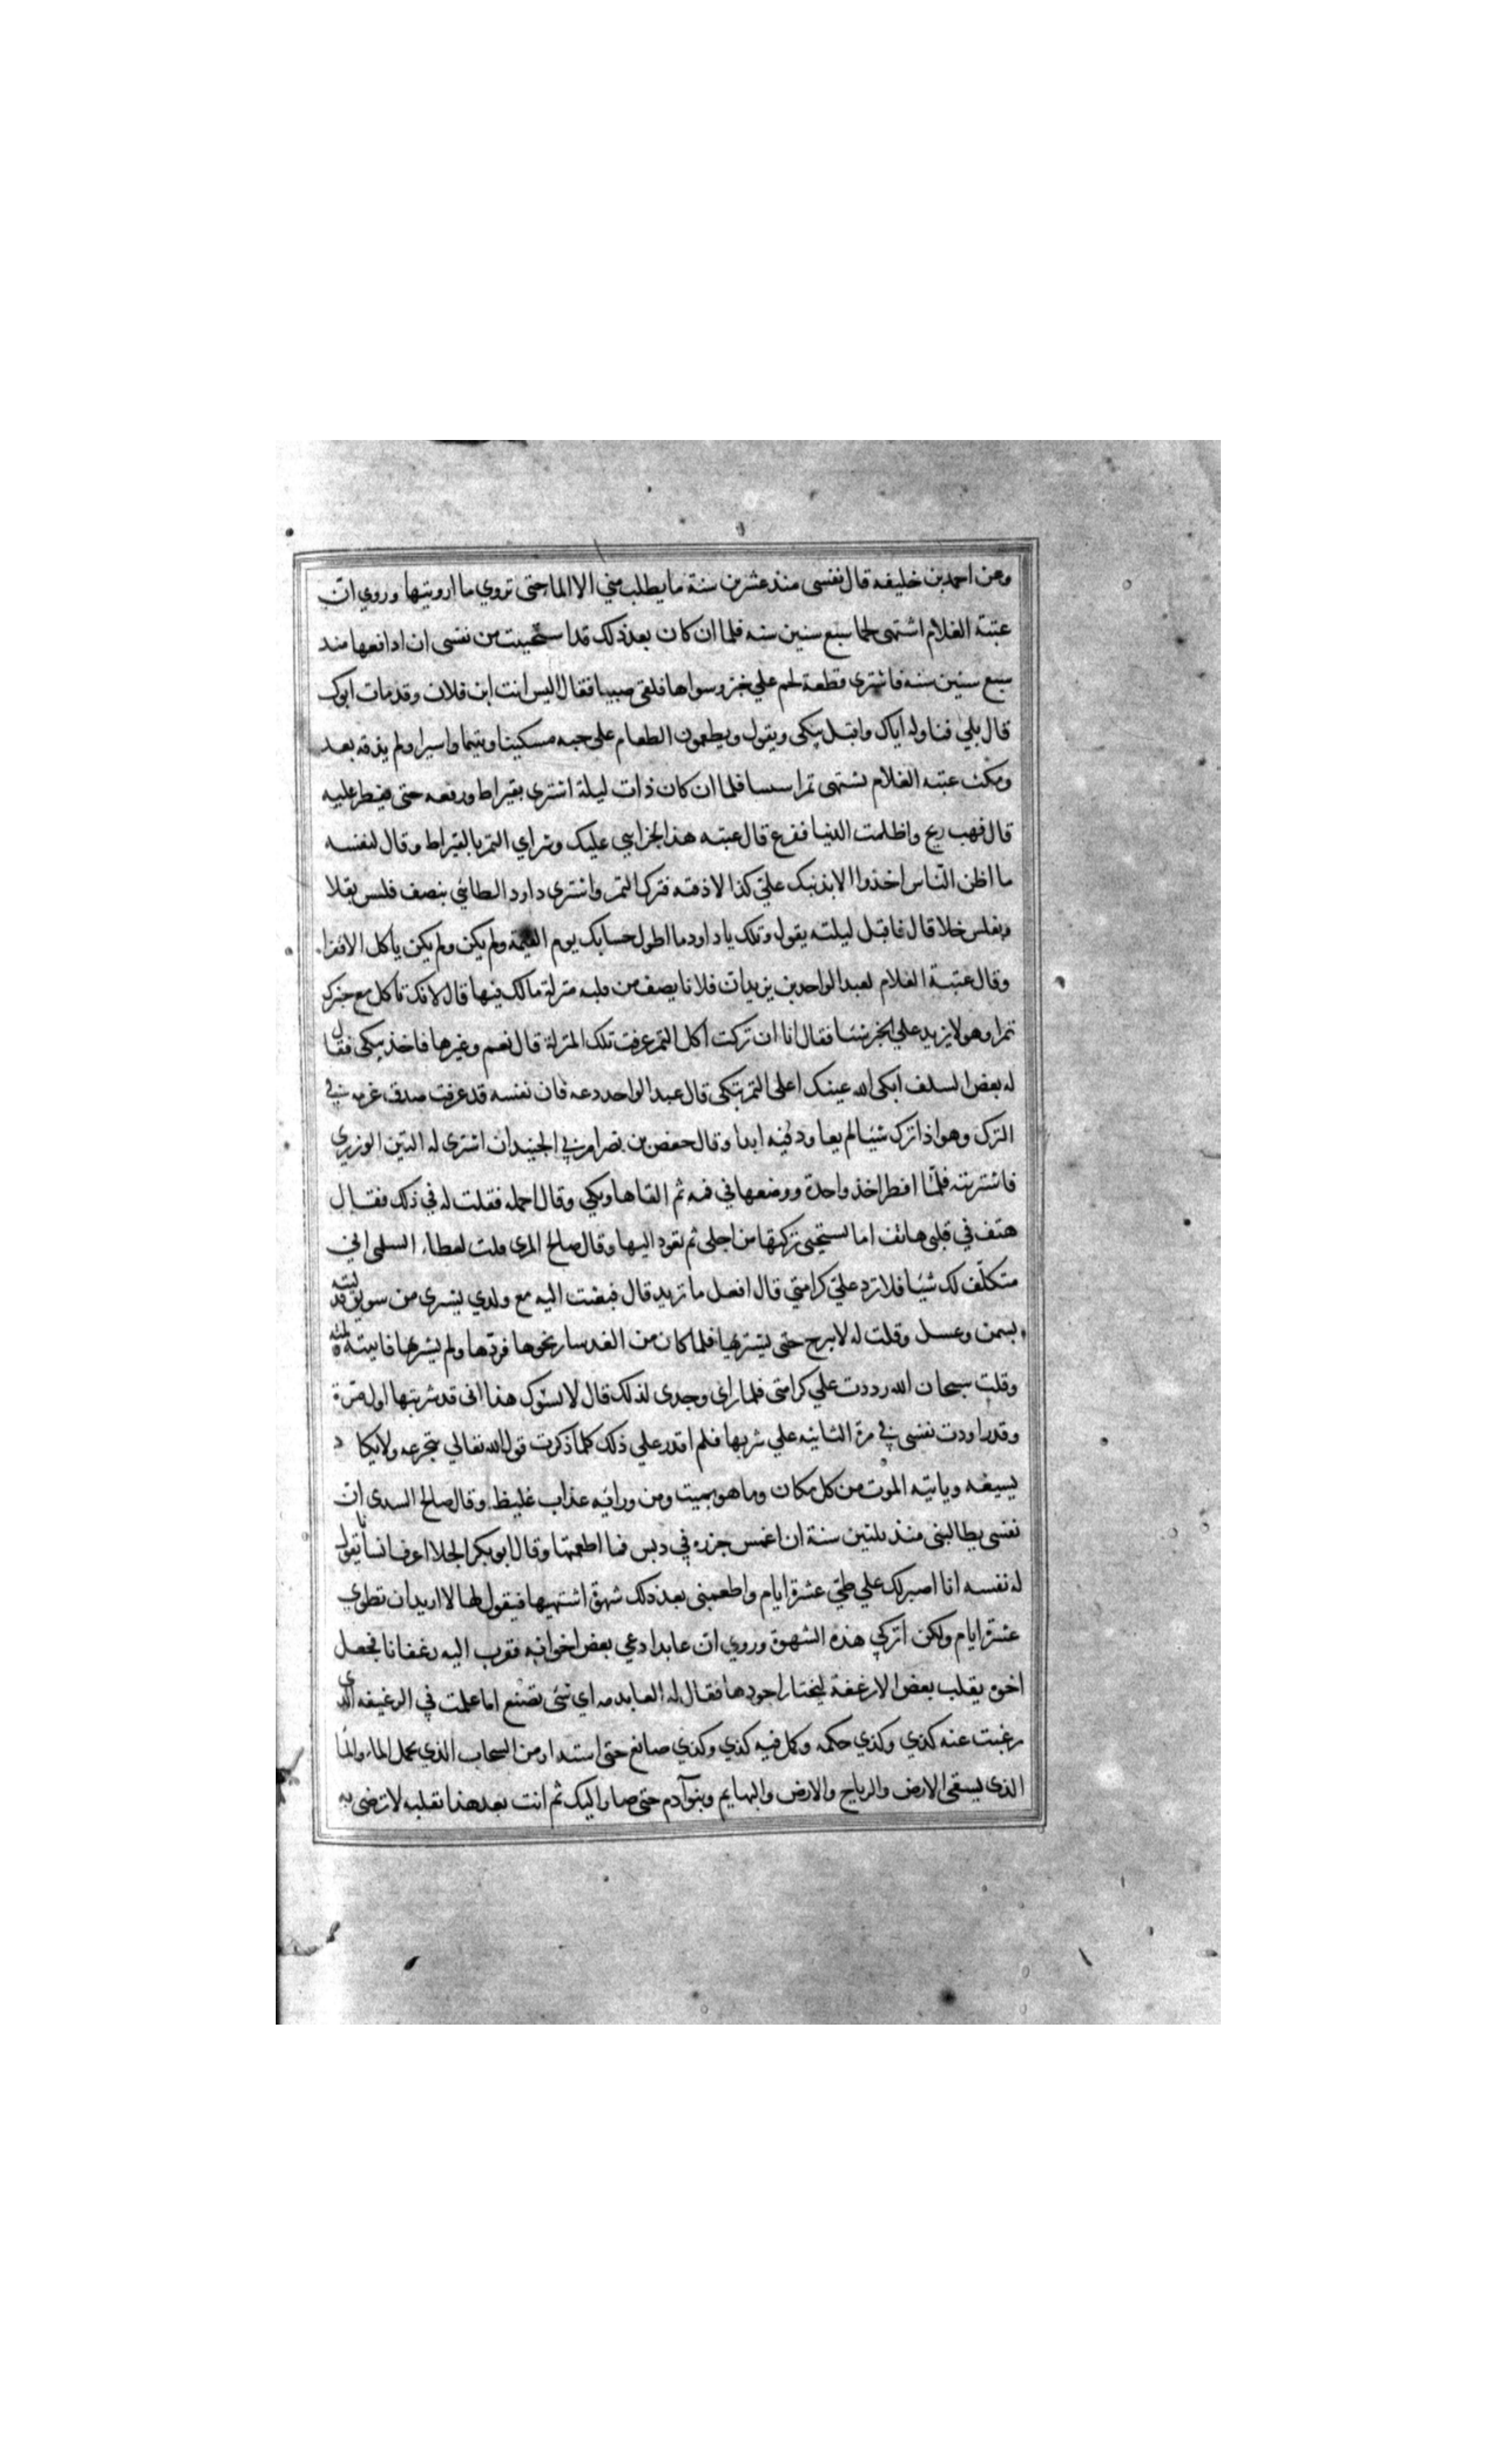 وعن احمد بن خليفه قال نفسي منذ عشرين سنة ما يطلب مني الا الماحتى تروي ما ارويتها وروي ان
عتبة الغلام اشتهى لحما سبع سنين سنه فلما ان كان بعد ذلك قد استحييت من نفسي ان ادافعها منذ
سبع سنين سنه فاشتري قطعة لحم علي خبز وسواها فلقى صبيا فقال اليس انت ابن فلان وقد مات ابوك
قال بلي فناوله اياك واقبل يبكى ويقول ويطعمون الطعام على حبه مسكينا ويتيما واسيرا ولم يذقه بعد
ومكث عتبه الغلام يشتهى تمرا سسا فلما ان كان ذات ليلة اشترى بقيراط ورفعه حتى يفطر عليه
قال فهب ريح واظلمت الدنيا ففزع قال عتبه هذا لجزايي عليك وشراي التمر بالقيراط وقال لنفسه
ما اظن الناس اخذوا الا بذنبك علي كذا الا ذقته فترك التمر واشترى داود الطائي بنصف فلس بقلا
وبفلس خلا قال فاقبل ليلته يقول وتلك يا داود ما اطول حسابك يوم القيمة ولم يكن ولم يكن ياكل الا فقرا
وقال عتبة الغلام لعبد الواحد بن زيد ان فلانا يصف من قلبه منزلة ما لك فيها قال لانك تاكل مع خبزك
تمرا وهو لا يزيد علي الخبز شئا فقال انا ان تركت اكل التمر عرفت تلك المنزلة قال نعم وغيرها فاخذ يبكى فقال
له بعض السلف ابكى الله عينك اعلى التمر تبكى قال عبد الواحد دعه فان نفسه قد عرفت صدق عزمه في
الترك وهو اذا ترك شيئا لم يعاود فيه ابدا وقال حفص بن نصر امرني الجنيد ان اشترى له التين الوزيري
فاشتريته فلما افطر اخذ واحدة ووضعها في فمه ثم القاها وبكي وقال احمله فقلت له في ذلك فقال
هتف في قلبي هاتف اما يستحيي تركتها من اجلي ثم تعود اليها وقال صالح المري قلت لعطاء السلمي اني
متكلف لك شيئا فلا ترد علي كرامتي قال افعل ما تريد قال فبعثت اليه مع ولدي يشرى من سويق قد لتيته
بسمن وعسل وقلت له لا يبرح حتى يشربها فلما كان من الغد سار نحوها فردها ولم يشربها فاتيته لمته
وقلت سبحان الله رددت علي كرامتي فلما راى وجدى لذلك قال لا يسؤك هذا اني قد شربتها اول مرة
وقد راودت نفسي في مرة الثانيه علي شربها فلم اقدر علي ذلك كلما ذكرت قول الله تعالي يتجرعه ولا يكاد
يسيغه وياتيه الموت من كل مكان وما هو بميت ومن ورائه عذاب غليظ وقال صالح السدى ان
نفسي يطالبنى منذ ثلثين سنة ان اغمس جزره في دبس فما اطعمتها وقال ابو بكر الجلا اعرف انسانا يقول
له نفسه انا اصبر لك علي طي عشرة ايام واطعمنى بعد ذلك شهوة اشتهيها فيقول لها لا اريد ان تطوي
عشرة ايام ولكن اتركي هذه الشهوة وروي ان عابدا دعي بعض اخوانه فقرب اليه رغفانا فجعل
اخوه يقلب بعض الارغفة ليختار اجودها فقال له العابد مه اي شئ تصنع اما علمت في الرغيفه الذي
رغبت عنه كذي وكذي حكمه وكمل فيه كذي وكذي صانع حتى استدار من السحاب الذي يحمل الماء والما
الذي يسقى الارض والرياح والارض والبهايم وبنو آدم حتى صار اليك ثم انت بعد هذا تقلبه لا ترضى به